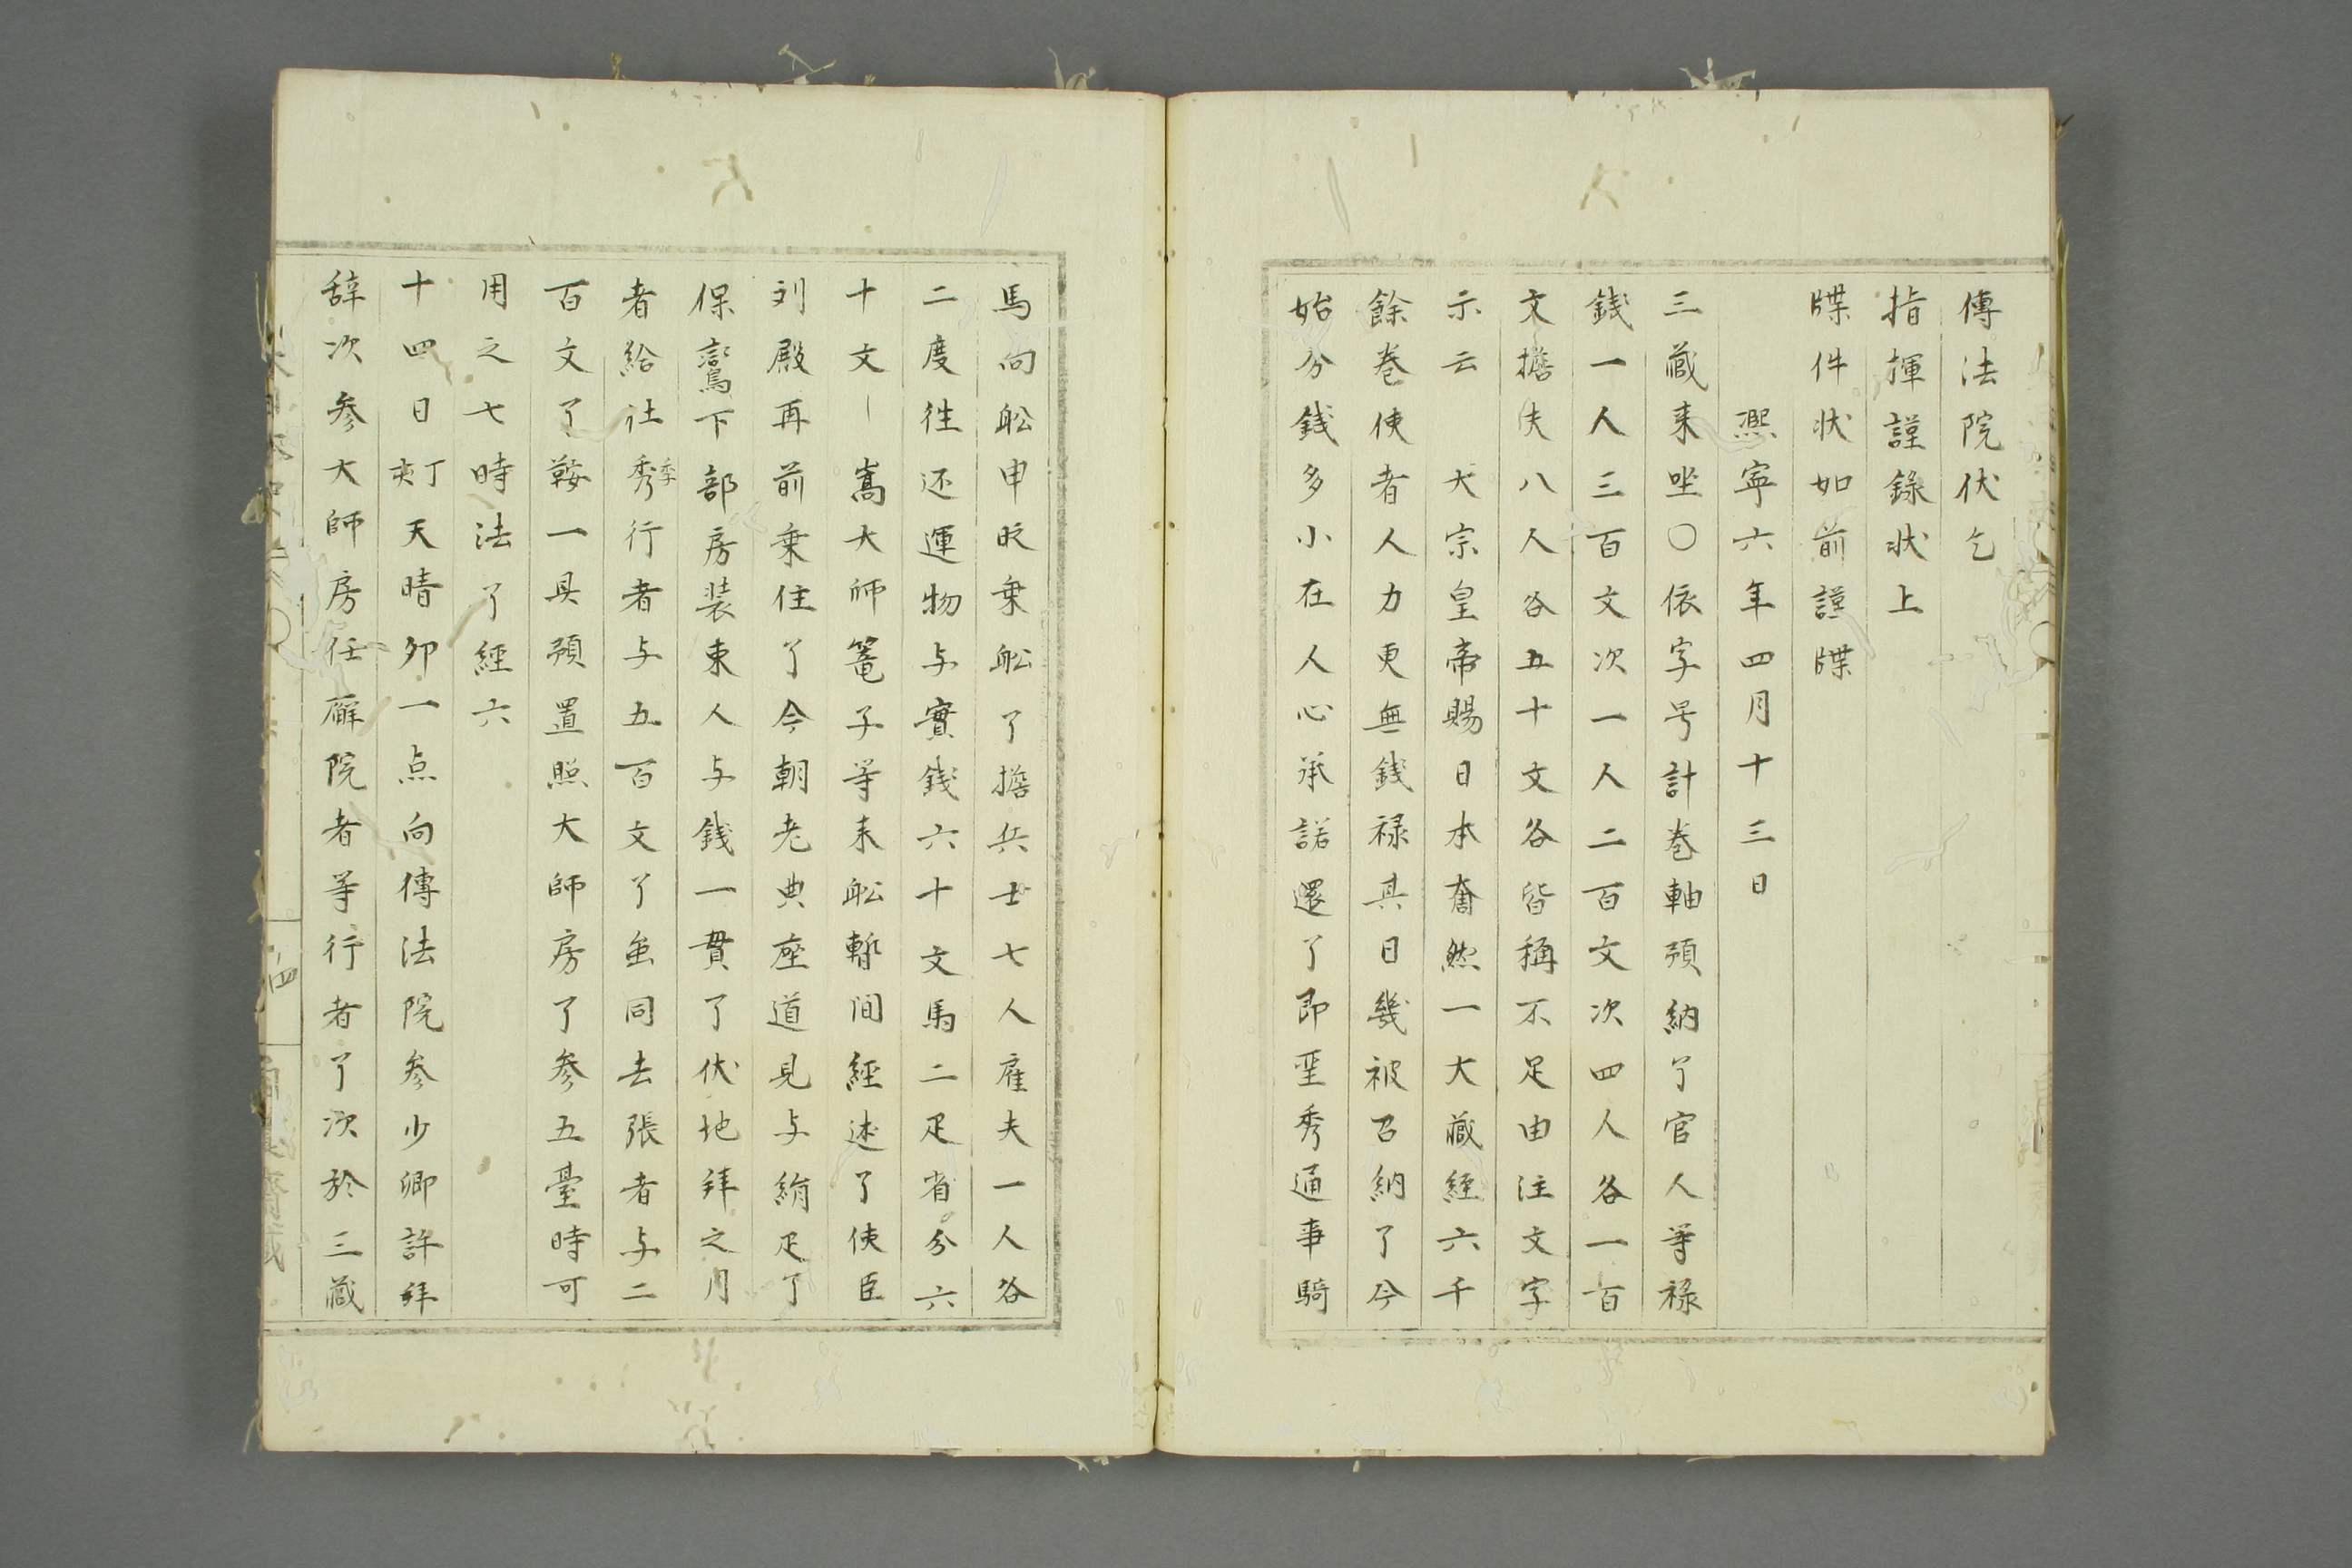 傳法院伏乞
指揮謹錄状上
牒件状如前謹牒
熈寧六年四月十三日
三藏来坐〇依字号計巻軸預納了官人等禄
錢一人三百文次一人二百文次四人各一百
文擔夫八人各五十文各皆稱不足由注文字
示云　大宗皇帝賜日本奝然一大藏經六千
餘巻使者人力更無錢禄其日幾被召納了今
始分錢多小在人心承諾還了即聖秀通事騎
馬向舩申時乗舩了擔兵士七人雇夫一人各
二度往还運物与實錢六十文馬二疋省分六
十文｜嵩大師篭子等来舩暫間經述了使臣
刘殿再前乗住了今朝老典座道見与絹疋了
保鸞下部房装束人与錢一貫了伏地拜之月
者給社秀季行者与五百文了並同去張者与二
百文了鞍一具預置照大師房了参五臺時可
用之七時法了經六
十四日丁夾天晴卯一点向傳法院参少卿許拜
辞次参大師房任廨院者等行者了次於三藏